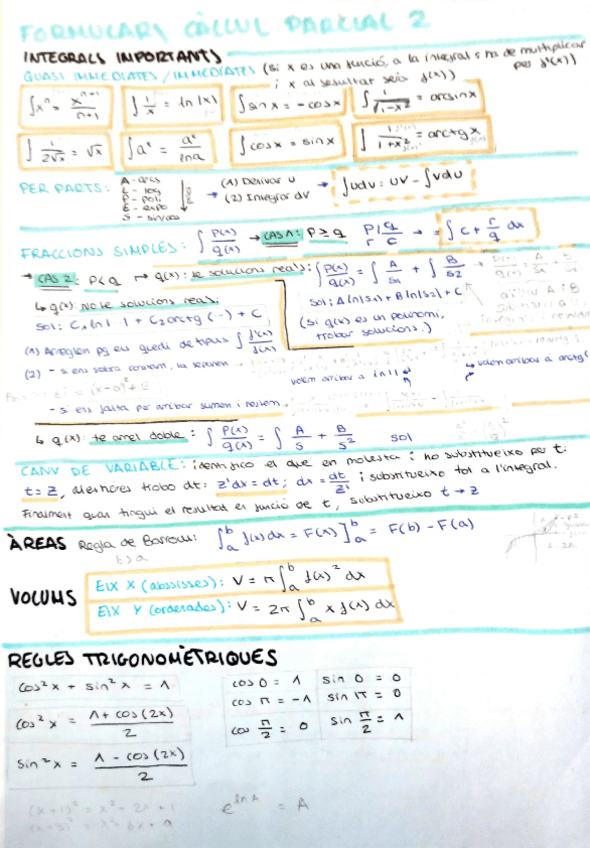 FORMULARI CÀLCUL PARCIAL 2
INTEGRALS IMPORTANTS
QUASI IMMEDIATES / IMMEDIATES (si x es una funció, a la integral s'ha de multiplicar per f'(x))
i x al resultat seis f(x))
∫xⁿ = xⁿ⁺¹/n+1   ∫1/x = ln|x|   ∫sinx = -cosx   ∫1/√1-x² = arcsinx
∫1/2√x = √x   ∫aˣ = aˣ/lna   ∫cosx = sinx   ∫1/1+x² = arctgx
PER PARTS: A - arcs
L - log
P - poli
E - expo
S - sin/cos
→ (1) Derivar u
(2) Integrar dv
→ ∫udv = uv - ∫vdu
FRACCIONS SIMPLES: ∫P(x)/q(x) → CAS 1: P ≥ q   P|q r c → = ∫c + r/q dx
→ CAS 2: P < q → q(x): te solucions reals: ∫P(x)/q(x) = ∫A/S1 + ∫B/S2
sol: A ln|S1| + B ln|S2| + C
(Si q(x) es un polinomi, trobar solucions.)
↳ q(x): No te solucions reals:
sol: C1 ln| | + C2 arctg(-) + C
(1) Arreglem pq ens quedi de tipus ∫f'(x)/f(x)
(2) - si ens sobra constant, la separem
volem arribar a ln||
↳ volem arribar a arctg(
- si ens falta per arribar sumem i restem
↳ q(x): te arrel doble: ∫P(x)/q(x) = ∫A/S + B/S²   sol
CANVI DE VARIABLE: identifico el que em molesta i ho substitueixo per t.
t = z, aleshores trobo dt: z'dx = dt; dx = dt/z' i substitueixo tot a l'integral.
Finalment quan tingui el resultat en funció de t, substitueixo t → z
ÀREAS Regla de Barrow: ∫ₐᵇ f(x)dx = F(x)]ₐᵇ = F(b) - F(a)
b > a
VOLUMS
EIX X (abscisses): V = π∫ₐᵇ f(x)² dx
EIX Y (ordenades): V = 2π∫ₐᵇ x f(x) dx
REGLES TRIGONOMÈTRIQUES
cos²x + sin²x = 1
cos²x = 1 + cos(2x)/2
sin²x = 1 - cos(2x)/2
cos 0 = 1   sin 0 = 0
cos π = -1   sin π = 0
cos π/2 = 0   sin π/2 = 1
(x+1)² = x² + 2x + 1
(x+3)² = x² + 6x + 9
e^lnA = A